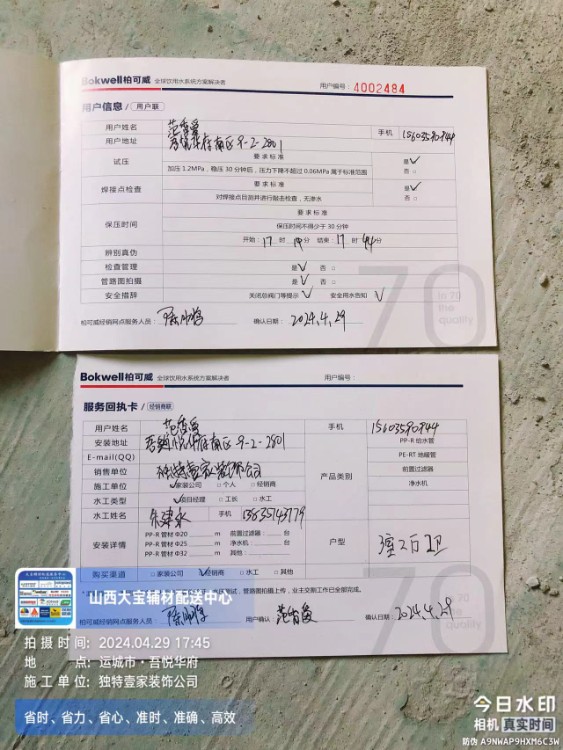 Bokwell柏可威 全球饮用水系统方案解决者 用户编号：4002484
用户信息 / 用户联
用户姓名 手机
用户地址 9-2-2801
试压 要求标准 是√
加压1.2MPa，稳压30分钟后，压力下降不超过0.06MPa属于标准范围 否□
焊接点检查 要求标准 是√
对焊接点目测并进行敲击检查，无渗水 否□
保压时间 要求标准
保压时间不得少于30分钟
开始：17时14分 结束：17时44分
辨别真伪
检查管理 是√ 否□
管路图拍摄 是√ 否□
安全措辞 关闭总阀门等提示√ 安全用水告知√
柏可威经销网点服务人员： 确认日期：2024.4.29
70
in 70
the
quality
Bokwell柏可威 全球饮用水系统方案解决者 用户编号：
服务回执卡 / 经销商联
用户姓名 手机
安装地址 9-2-2801 PP-R 给水管
E-mail(QQ) PE-RT 地暖管
销售单位 独特壹家装饰公司 产品类别 前置过滤器
施工单位 √家装公司 □个人 □经销商 净水机
水工类型 √项目经理 □工长 □水工
水工姓名 手机 13835143779
安装详情 PP-R 管材 Φ20 m 前置过滤器： 台 户型 3室2厅2卫
PP-R 管材 Φ25 m 净水机： 台
PP-R 管材 Φ32 m 其他：
购买渠道 □家装公司 √经销商 □水工 □其他
试，管路图拍摄上传，业主交底工作已全部完成。
柏可威经销网点服务人员： 用户确认 确认日期：2024.4.29
70
山西大宝辅材配送中心
拍摄时间：2024.04.29 17:45
地点：运城市·吾悦华府
施工单位：独特壹家装饰公司
省时、省力、省心、准时、准确、高效
今日水印
相机 真实时间
防伪 A9NWAP9HXM6C3W